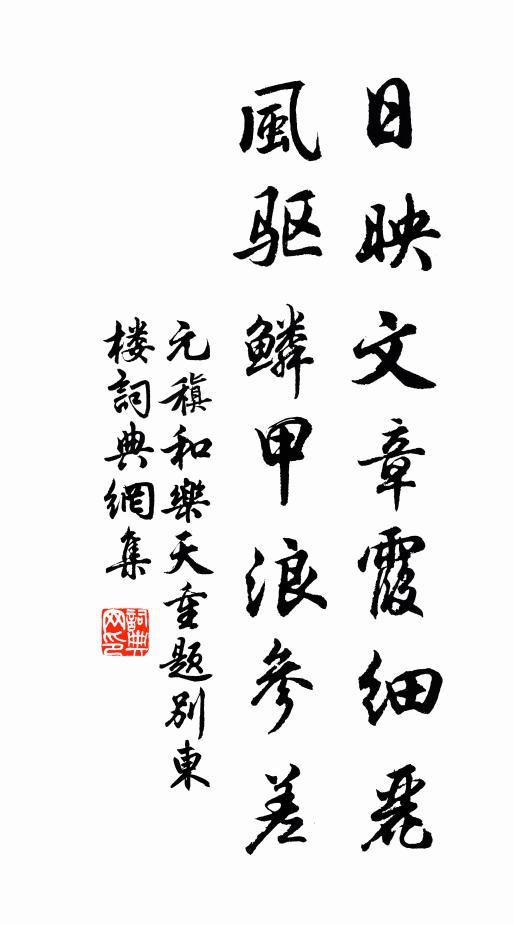 日映文章霞细麗
風驱鳞甲浪參差
元稹和樂天重题别東
楼詞典網集
詞典
网印